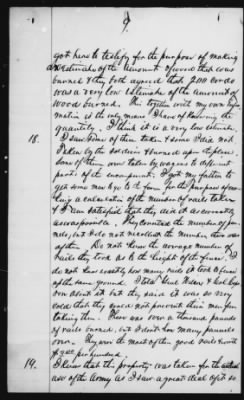 9.
got here to testify for the purpose of making
an estimate of the amount of wood that was
burned & they both agreed that 200 cords
was a very low estimate of the amount of
wood burned. This together with my own
is the only means I have of knowing the
quantity. I think it is a very low estimate.
18. I saw some of them taken & some were not
taken by the soldiers & burned upon the place
Some of them were taken by wagons to different
parts of the encampment. I got my father to
get some men to go to the farm for the purpose of making
a calculation of the number of rails taken
& I am satisfied that they did it as correctly
as was possible. They counted the number of pannels
but I do not recollect the number there was
after. Do not know the average number of
rails they took as to the height of the fence. I
do not know exactly how many rails it took to fence
of the same ground. I told Genl
over about it but they said it was so very
cold that they could not prevent their men from
taking them. There was some a thousand pannels
of rails burned, but I don't know many pannels
over. They were the most of them good rails worth
per hundred.
19. I know that the property was taken for the actual
use of the Army as I saw a great deal of it so